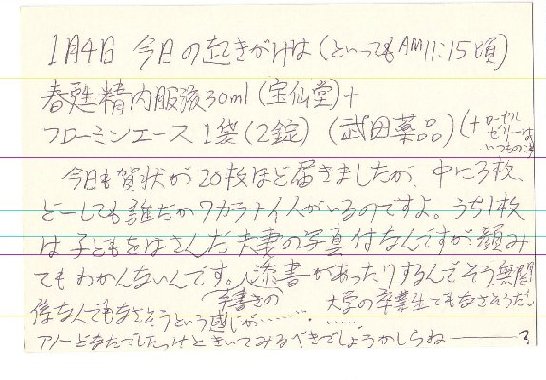 1月4日 今日の起きがけは(といってもAM11:15頃)
春甦精内服液30ml(宝仙堂)+
フローミンエース1袋(2錠)(武田薬品)(+ローヤルゼリーはいつもの事)
今日も賀状が20枚ほど届きましたが、中に3枚、
どーしても誰だかワカラナイ人がいるのですよ。うち1枚
は子どもをはさんだ夫妻の写真付なんですが顔み
てもわかんないんです。手書きの添書があったりするんでそう無関
係なんでもなさそうという感じが…… 大学の卒業生でもなさそうだし……
アノーどなたでしたっけときいてみるべきでしょうかしらね——?